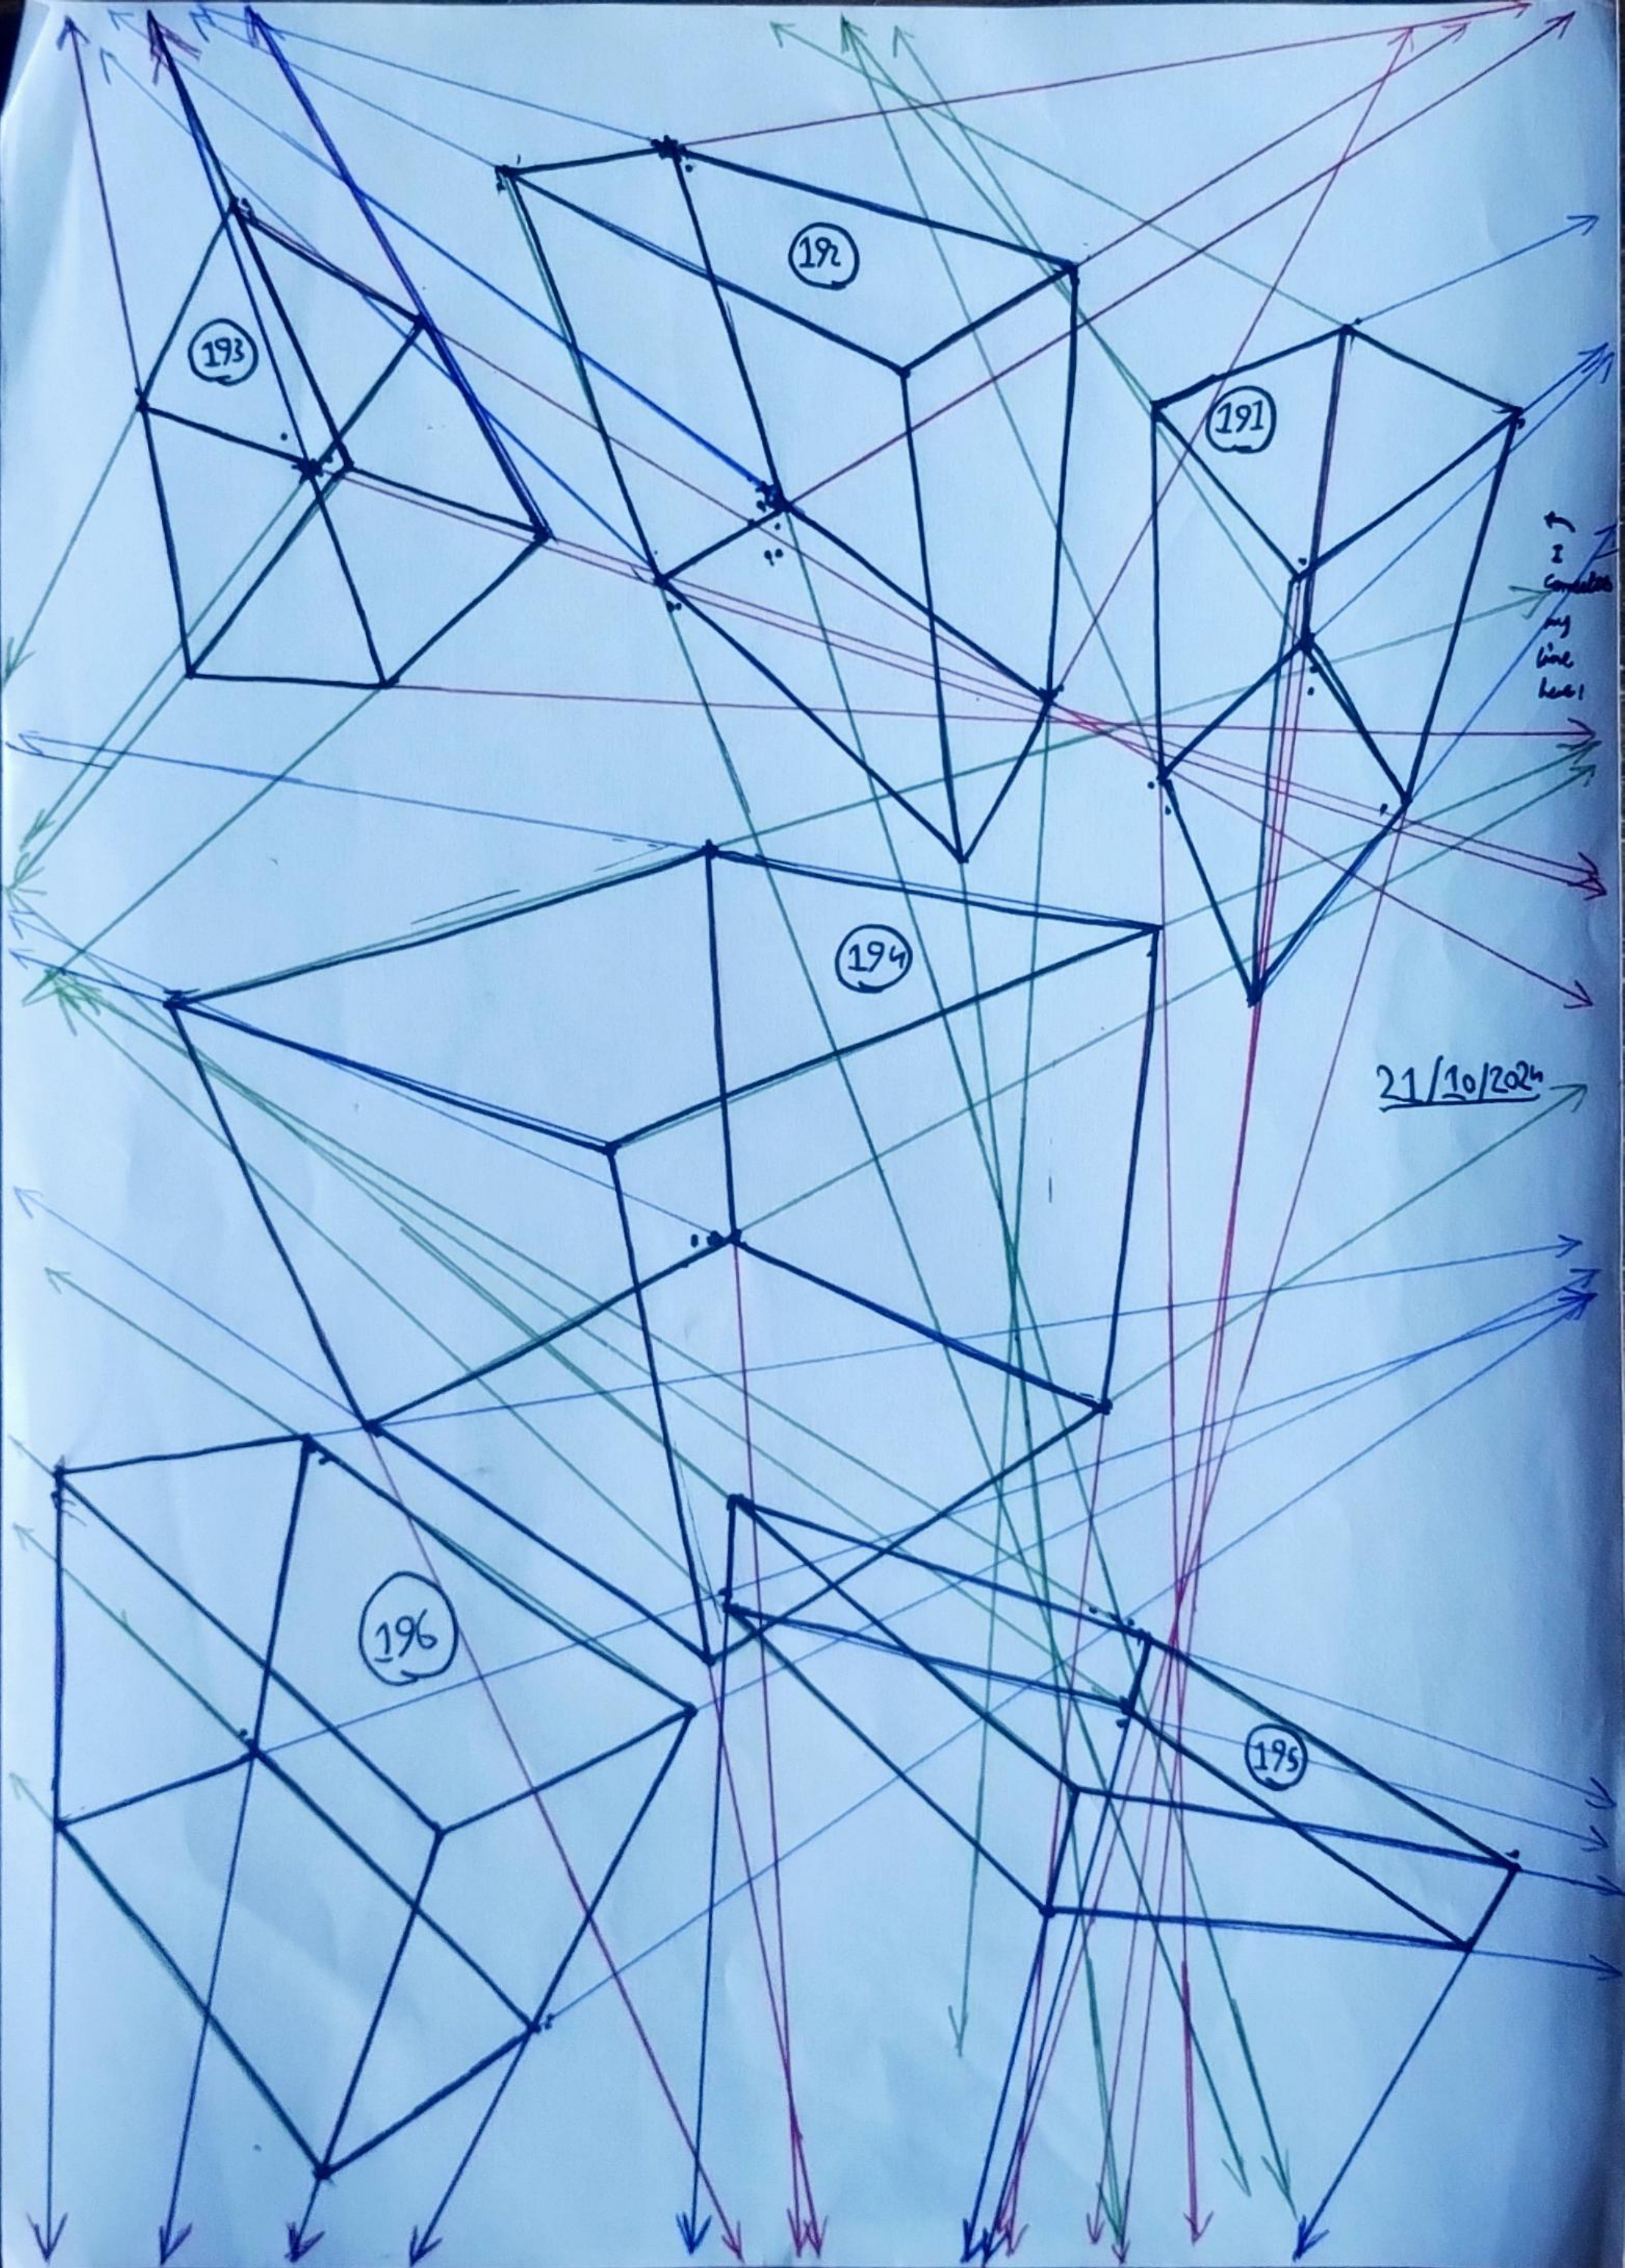 192
193
191
↑
I
my
line
here!
194
21/10/2024
196
195